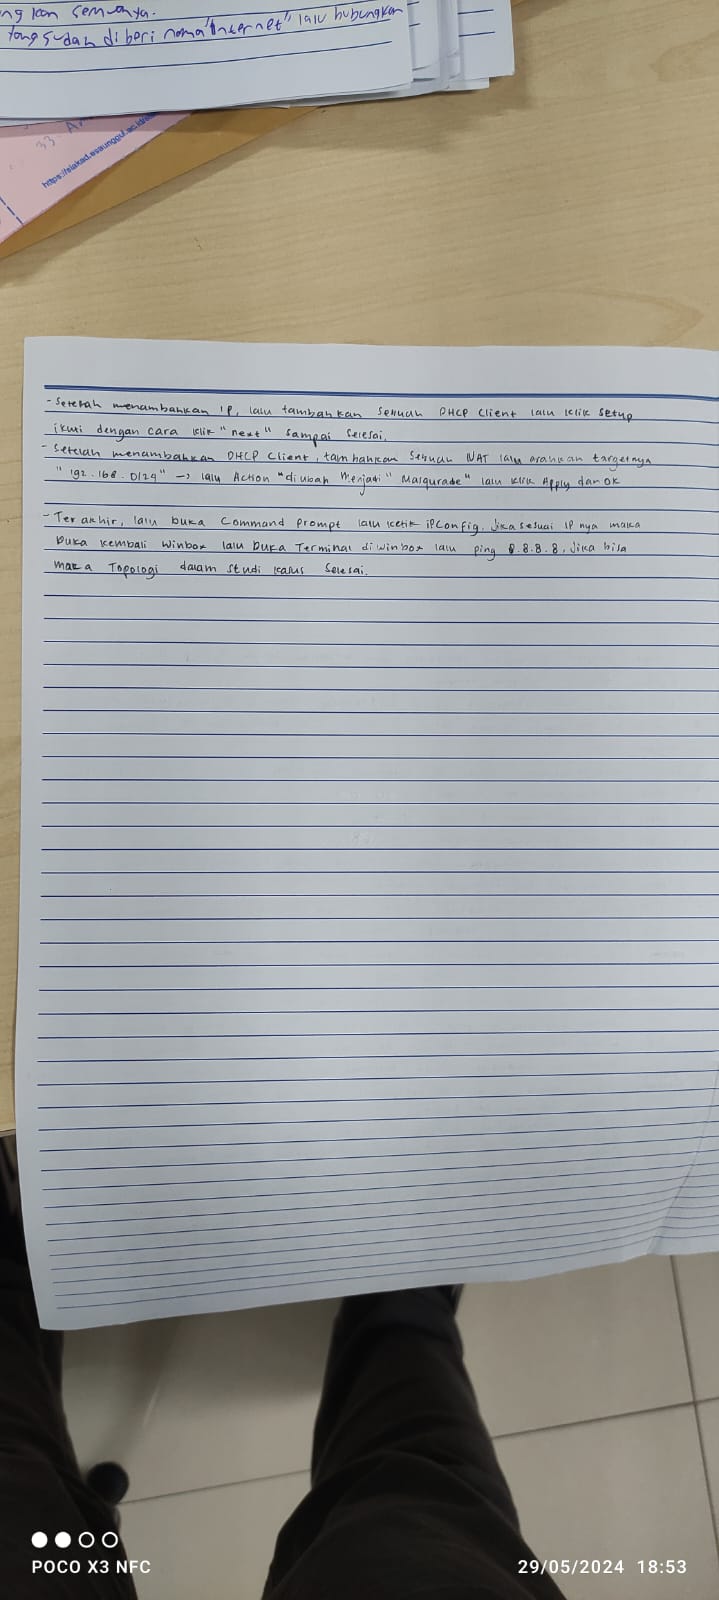 ng kan semuanya.
yang sudah di beri nama "Internet" lalu hubungkan
33. A
https://siakad.esaunggul.ac.id/
- Setelah menambahkan IP, lalu tambahkan sebuah DHCP Client lalu klik setup
ikuti dengan cara klik "next" sampai selesai.
- Setelah menambahkan DHCP Client, tambahkan sebuah NAT lalu arahkan targetnya
"192.168.0/24" -> lalu Action "diubah Menjadi" Masqurade" lalu klik Apply dan OK
- Terakhir, lalu buka Command Prompt lalu ketik ipConfig. Jika sesuai IP nya maka
buka kembali Winbox lalu buka Terminal di winbox lalu ping 8.8.8.8, Jika bisa
maka Topologi dalam studi kasus Selesai.
POCO X3 NFC
29/05/2024 18:53